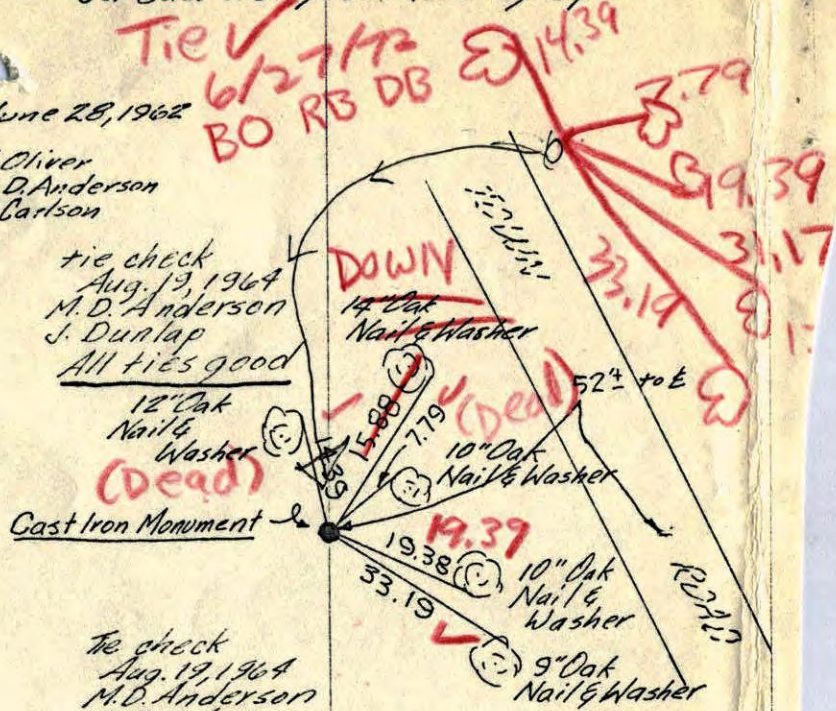 Tie ✓
6/27/72
BO RB DB
14.39
7.79
19.39
31.17
33.19
June 28, 1962
Oliver
D. Anderson
Carlson
tie check
Aug. 19, 1964
M.D. Anderson
J. Dunlap
All ties good
TOWN
DOWN
14" Oak
Nail & Washer
12" Oak
Nail &
Washer
(Dead)
14.39
15.88
7.79
(Dead)
52'± to ℄
10" Oak
Nail & Washer
Cast Iron Monument
19.39
19.38
10" Oak
Nail &
Washer
33.19
ROAD
9" Oak
Nail & Washer
Tie check
Aug. 19, 1964
M.D. Anderson